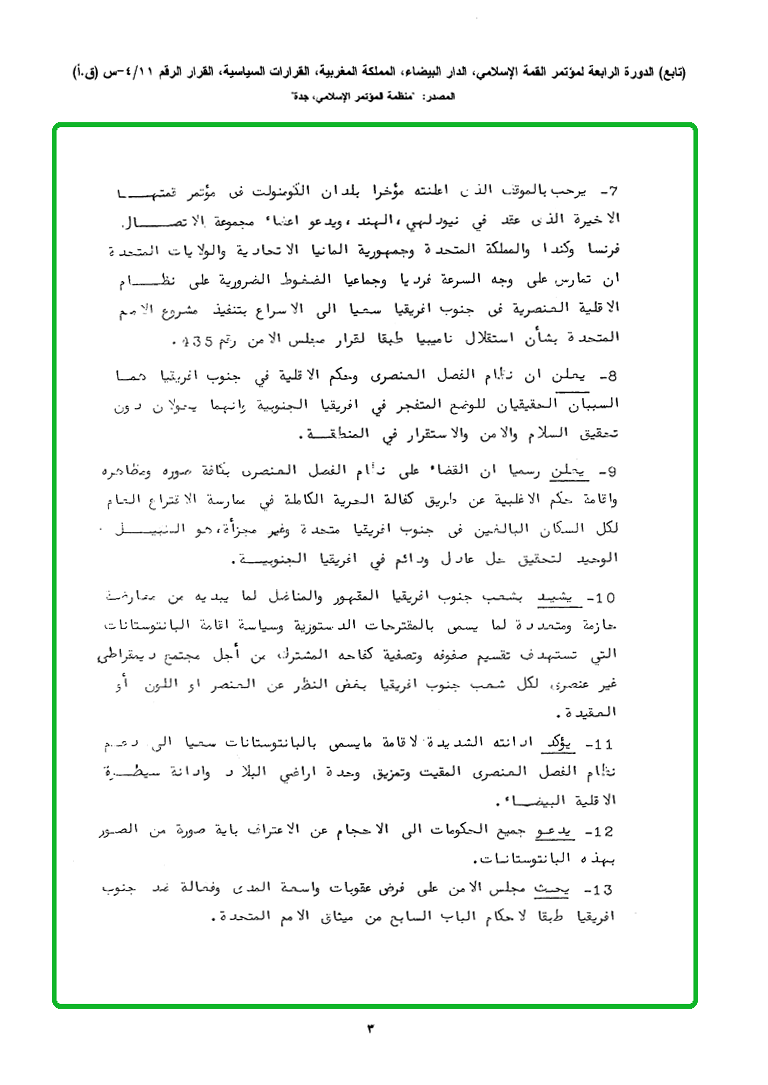 (تابع) الدورة الرابعة لمؤتمر القمة الإسلامي، الدار البيضاء، المملكة المغربية، القرارات السياسية، القرار الرقم ٤/١١-س (ق.أ)
المصدر: "منظمة المؤتمر الإسلامي، جدة"
7- يرحب بالموقف الذى اعلنته مؤخرا بلدان الكومنولث فى مؤتمر قمتهـــا
الاخيرة الذى عقد في نيودلهي، الهند، ويدعو اعضاء مجموعة الاتصـــال
فرنسا وكندا والمملكة المتحدة وجمهورية المانيا الاتحادية والولايات المتحدة
ان تمارس على وجه السرعة فرديا وجماعيا الضغوط الضرورية على نظـــام
الاقلية العنصرية فى جنوب افريقيا سعيا الى الاسراع بتنفيذ مشروع الامم
المتحدة بشأن استقلال ناميبيا طبقا لقرار مجلس الامن رقم 435.
8- يعلن ان نظام الفصل العنصرى وحكم الاقلية في جنوب افريقيا همـا
السببان الحقيقيان للوضع المتفجر في افريقيا الجنوبية وانهما يحولان دون
تحقيق السلام والامن والاستقرار في المنطقــة.
9- يعلن رسميا ان القضاء على نظام الفصل العنصرى بكافة صوره ومظاهره
واقامة حكم الاغلبية عن طريق كفالة الحرية الكاملة في ممارسة الاقتراع العام
لكل السكان البالغين فى جنوب افريقيا متحدة وغير مجزأة، هو السبيـــل
الوحيد لتحقيق حل عادل ودائم في افريقيا الجنوبيــة.
10- يشيد بشعب جنوب افريقيا المقهور والمناضل لما يبديه من معارضة
حازمة ومتحددة لما يسمى بالمقترحات الدستورية وسياسة اقامة البانتوستانات
التي تستهدف تقسيم صفوفه وتصفية كفاحه المشترك من أجل مجتمع ديمقراطى
غير عنصرى لكل شعب جنوب افريقيا بغض النظر عن العنصر او اللون أو
العقيدة.
11- يؤكد ادانته الشديدة لاقامة مايسمى بالبانتوستانات سعيا الى دعـم
نظام الفصل العنصرى المقيت وتمزيق وحدة اراضي البلاد وادانة سيطـــرة
الاقلية البيضــاء.
12- يدعو جميع الحكومات الى الاحجام عن الاعتراف باية صورة من الصور
بهذه البانتوستانـات.
13- يحث مجلس الامن على فرض عقوبات واسعة المدى وفعالة ضد جنوب
افريقيا طبقا لاحكام الباب السابع من ميثاق الامم المتحدة.
٣